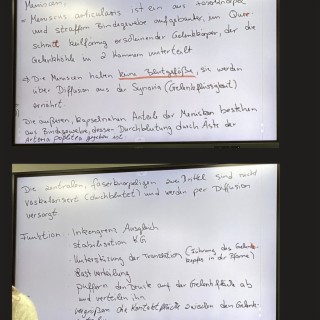 Meniscus,
- Meniscus articularis ist ein aus Faserknorpel
und straffem Bindegewebe aufgebauter, im Quer-
schnitt keilförmig erscheinender Gelenkkörper, der die
Gelenkhöhle in 2 Kammern unterteilt
→ Die Menisken haben keine Blutgefäße, sie werden
über Diffusion aus der Synovia (Gelenkflüssigkeit)
ernährt.
Die äußeren, kapselnahen Anteile der Menisken bestehen
aus Bindegewebe, dessen Durchblutung durch Äste der
Arteria poplitea gegeben ist
Die zentralen, faserknorpeligen zwei Drittel sind nicht
vaskularisiert (durchblutet) und werden per Diffusion
versorgt
Funktion: Inkongruenz Ausgleich
stabilisation KG
Unterstützung der Translation (Führung des Gelenk-
kopfes in der Pfanne)
Lastverteilung
puffern den Druck auf der Gelenkfläche ab
und verteilen ihn
vergrößern die Kontaktfläche zwischen den Gelenk-